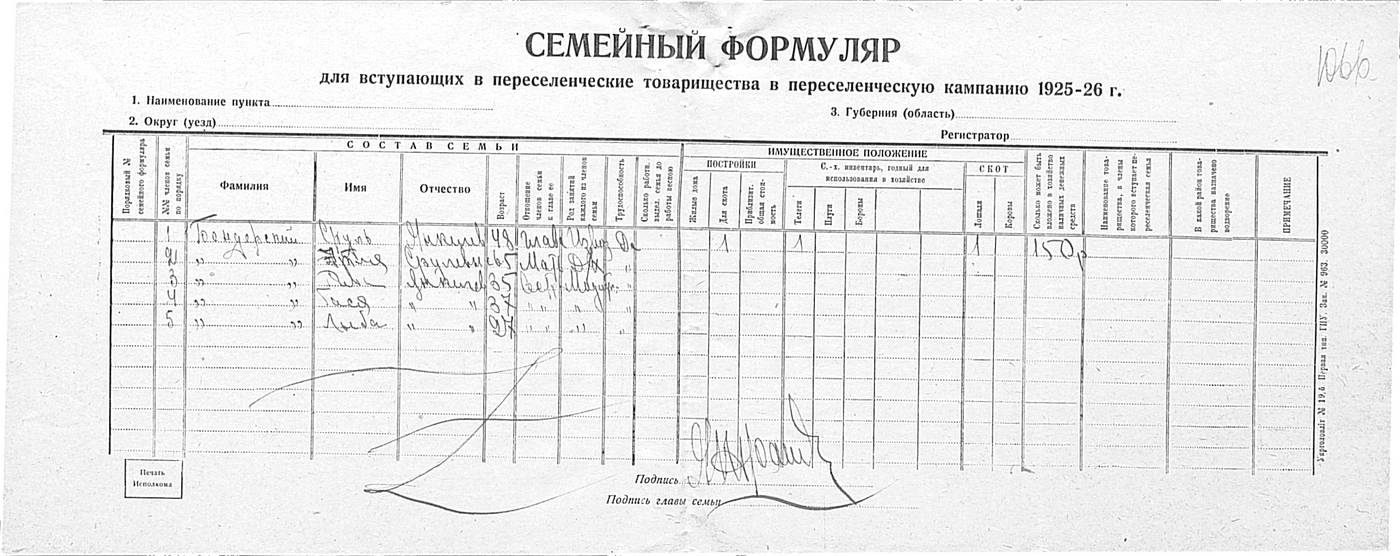 СЕМЕЙНЫЙ ФОРМУЛЯР
для вступающих в переселенческие товарищества в переселенческую кампанию 1925-26 г.
1. Наименование пункта
3. Губерния (область)
2. Округ (уезд)
Регистратор
СОСТАВ СЕМЬИ
ИМУЩЕСТВЕННОЕ ПОЛОЖЕНИЕ
Порядковый № семейного формуляра
№№ членов семьи по порядку
Фамилия
Имя
Отчество
Возраст
Отношение членов семьи к главе ее
Род занятий каждого из членов семьи
Трудоспособность
Сколько работн. выдел. семья до работы весною
ПОСТРОЙКИ
Жилые дома
Для скота
Приблизит. общая стоимость
С.-х. инвентарь, годный для использования в хозяйстве
Телеги
Плуги
Бороны
СКОТ
Лошади
Коровы
Сколько может быть вложено в хозяйство наличных денежных средств
Наименование товарищества, в члены которого вступает переселенческая семья
В какой район товарищества назначено водворение
ПРИМЕЧАНИЕ
1 Бендерский Сруль 48 глава Извоз Да 1 1 1 150 р
2 " " Срулевн 65 Мать Д/х "
3 " " 35 Сест "
4 " " " " 37 " " " "
5 " " Лыба " " 27 " " " " "
Печать Исполкома
Подпись
Подпись главы семьи
Укрголовліт № 19.6 Первая тип. ГПУ. Зак. № 963. 30000